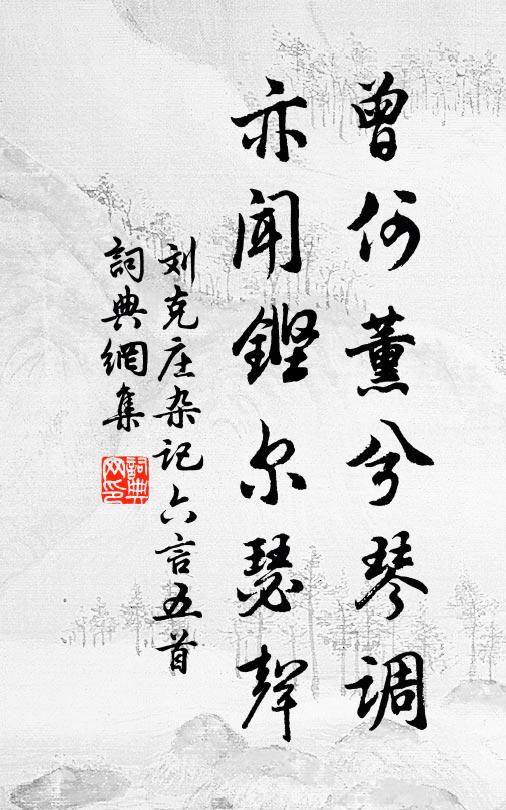 曾何薰兮琴调
亦闻鏗尔瑟聲
刘克庄杂记六言五首
詞典網集
詞典网印